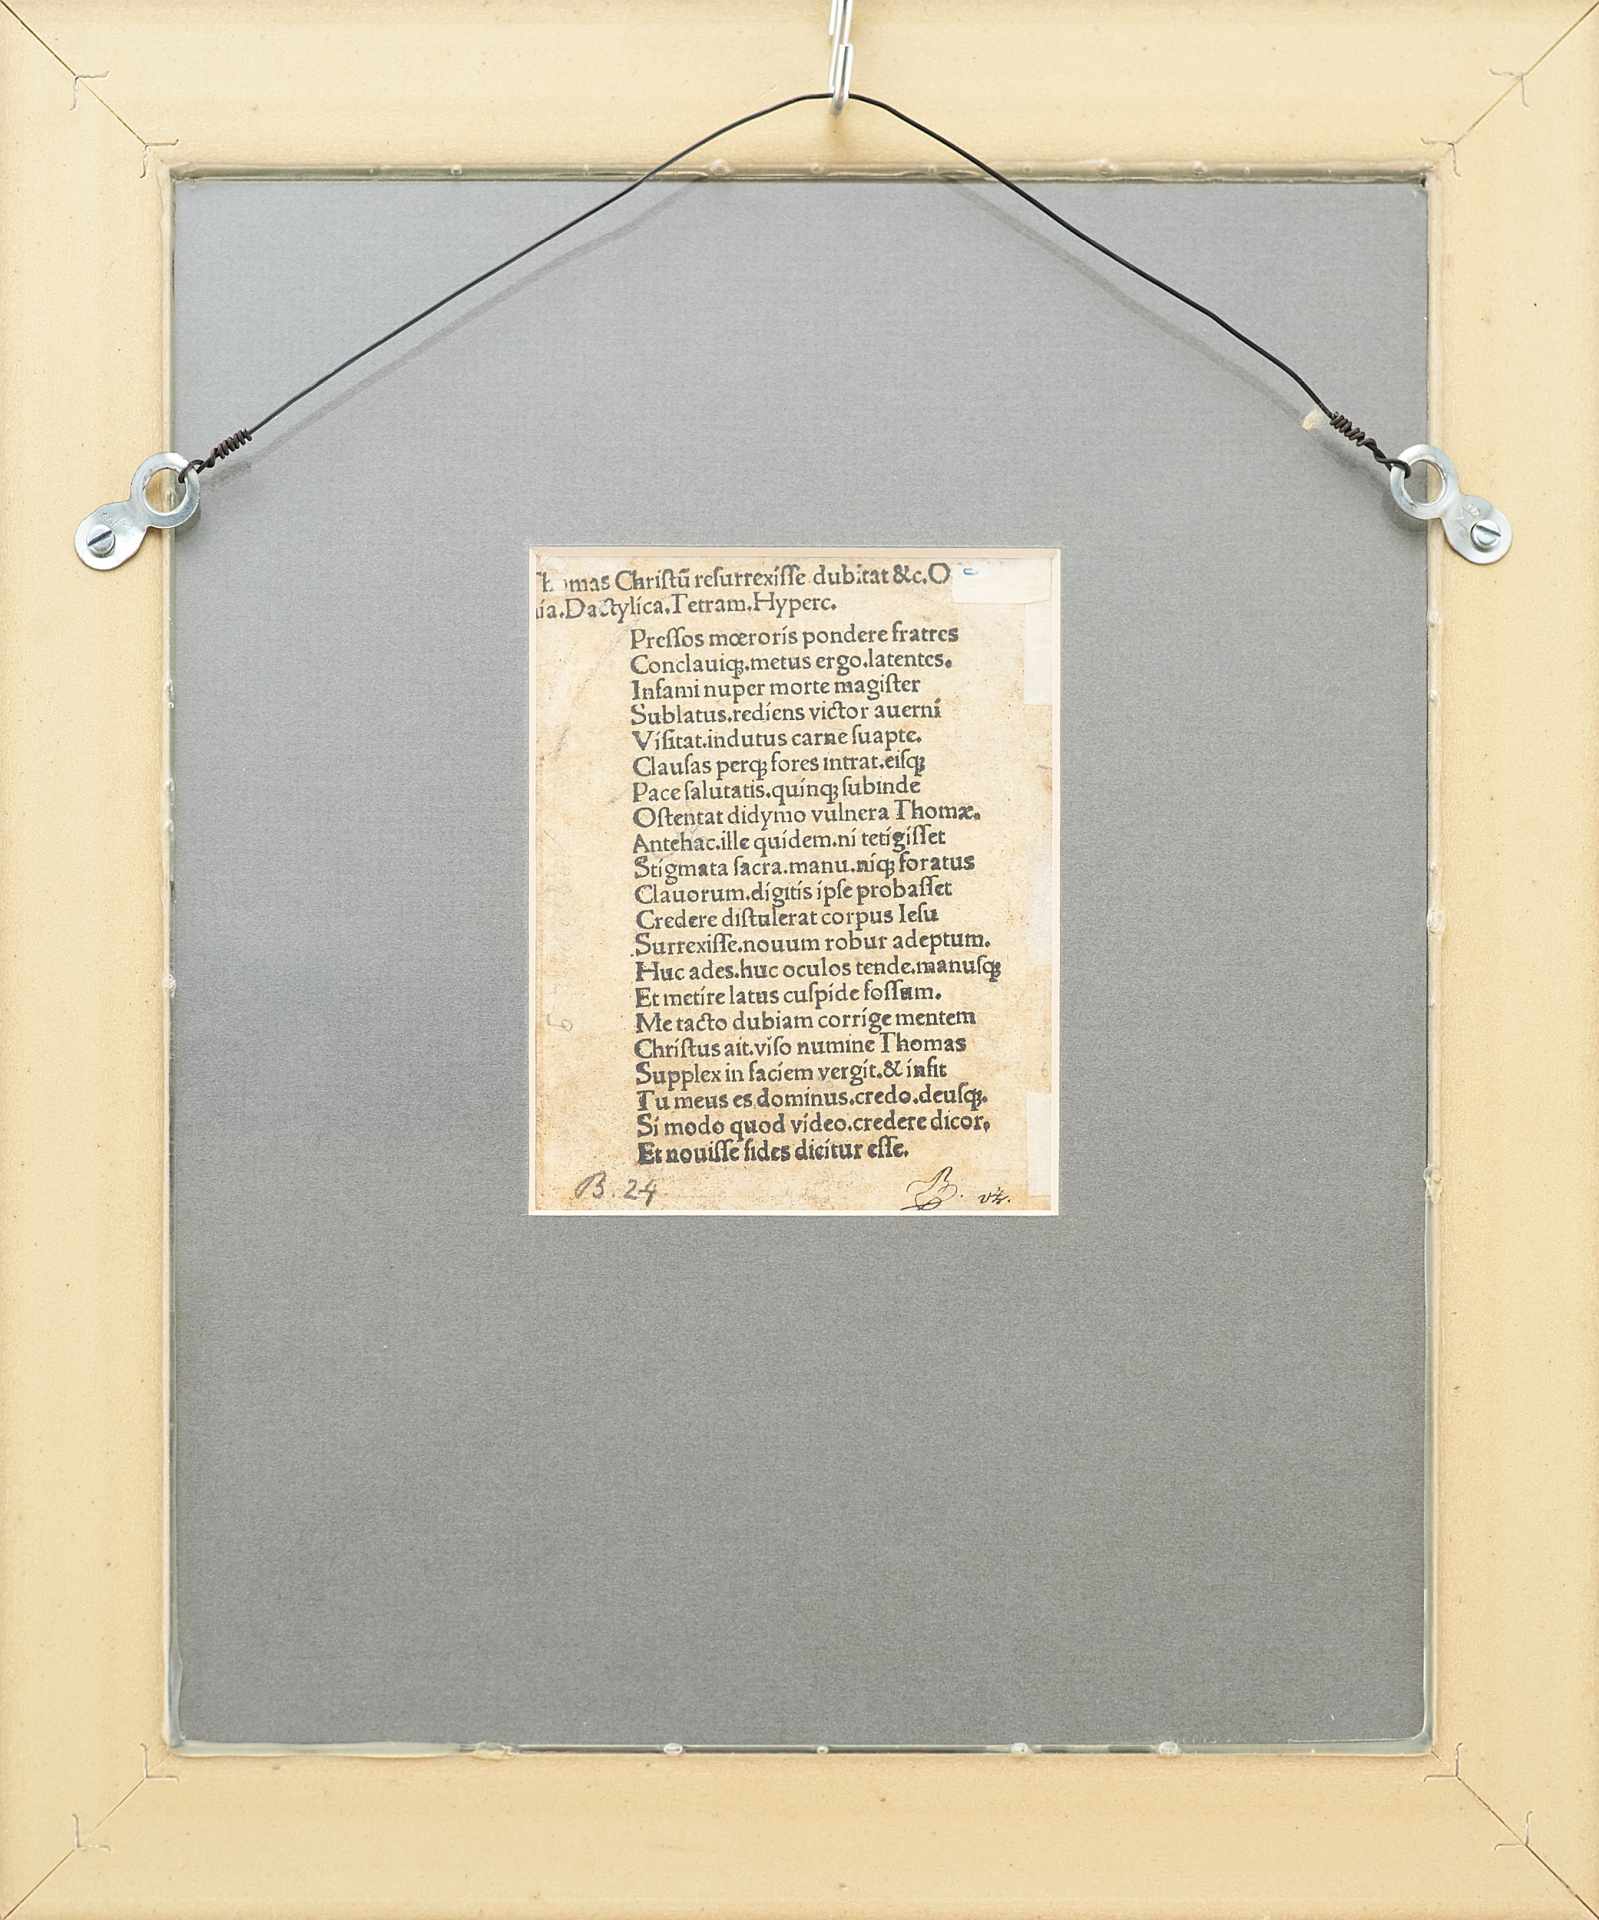 Thomas Chriſtū reſurrexiſſe dubitat &c.O
ia.Dactylica.Tetram.Hyperc.
Preſſos mœroris pondere fratres
Conclauiqꝫ.metus ergo.latentes.
Infami nuper morte magiſter
Sublatus.rediens victor auerni
Viſitat.indutus carne ſuapte.
Clauſas perqꝫ fores intrat.eiſqꝫ
Pace ſalutatis.quinqꝫ ſubinde
Oſtentat didymo vulnera Thomæ.
Antehac.ille quidem.ni tetigiſſet
Stigmata ſacra.manu.niqꝫ foratus
Clauorum.digitis ipſe probaſſet
Credere diſtulerat corpus Ieſu
Surrexiſſe.nouum robur adeptum.
Huc ades.huc oculos tende.manuſqꝫ
Et metire latus cuſpide foſſum.
Me tacto dubiam corrige mentem
Chriſtus ait.viſo numine Thomas
Supplex in faciem vergit.& infit
Tu meus es dominus.credo.deuſqꝫ.
Si modo quod video.credere dicor.
Et nouiſſe fides dicitur eſſe.
B. 24
B.